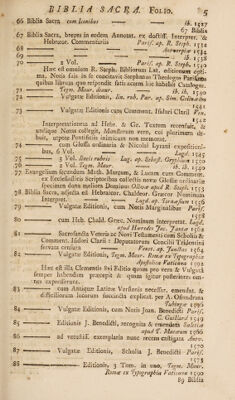 BIBLIA SACRA. Folio. 5
66 Biblia Sacra cum Iconibus ib. 1527
67 Biblia
68 Biblia Sacra, breves in eadem Annotat. ex doctiss. Interpret. &
Hebræor. Commentariis Paris. ap. R. Steph. 1532
69 Antuerpiæ 1534
70 2 Vol. Paris. ap. R. Steph. 1540
Hæc est omnium R. Steph. Bibliorum Lat. editionum opti-
ma. Notis suis in se concitavit Stephanus Theologos Parisienses
quibus librum quo respondit satis acrem hic habebit Catalogus.
73 Vulgatæ Editionis, lin. rub. Par. ap. Sim. Colinæum
1541
Vulgatæ Editionis cum Comment. Isidori Clarii
Interpretationem ad Hebr. & Gr. Textum recensuit, &
antiquæ Notas collegit, Monstrum vero, cui plurimum de-
buit, utpote Pontificiis inimicum non memorat.
74 cum Glossa ordinaria & Nicolai Lyrani expositioni-
bus, 6 Vol. Lugd. 1545
76 3 Vol. Tegm. Mor. ib. 1550
77 Evangelium secundum Matth. Marcum, & Lucam cum Comment.
ex Ecclesiasticis Scriptoribus collectis novæ Glossæ ordinariæ
specimen dono meliora Domino Olivæ apud R. Steph. 1553
78 Biblia Sacra, adjectis ad Hebræor. Chaldeor. Græcor. Nominum
Interpret. Lugd. ap. Tornæsium 1556
79 Vulgatæ Editionis, cum Notis Marginalibus Paris.
1558
80 cum Heb. Chald. Græc. Nominum Interpretat. Lugd.
apud Hæredes Jac. Juntæ 1562
81 Sacrosancta Veteris ac Novi Testamenti cum Scholiis &
Comment. Isidori Clarii: Deputatorum Concilii Tridentini
Venet. ap. Junctas 1564
82 Vulgatæ Editionis, Tegm. Maur. Romæ ex Typographia
Apostolica Vaticana 1592
Hæc est illa Clementis 8vi Editio quam pro vera & Vulgata
semper habendam præcepit & quam igitur posteriores om-
nes expresserunt.
83 cum Antiquæ Latinæ Versionis necessar. emendat. &
difficiliorum locorum succincta explicat. per A. Osiandrum
Tubingæ 1596
84 Vulgatæ Editionis, cum Notis Joan. Benedicti Paris.
1549
85 Editionis J. Benedicti, recognita & emendata
86 ad vetustiss. exemplaria nunc recens castigata
87 Vulgatæ Editionis, Scholia J. Benedicti Paris.
1573
88 Editionis, 3 Tom. in uno, Tegm. Maur.
Romæ ex Typographia Vaticana 1590
89 Biblia